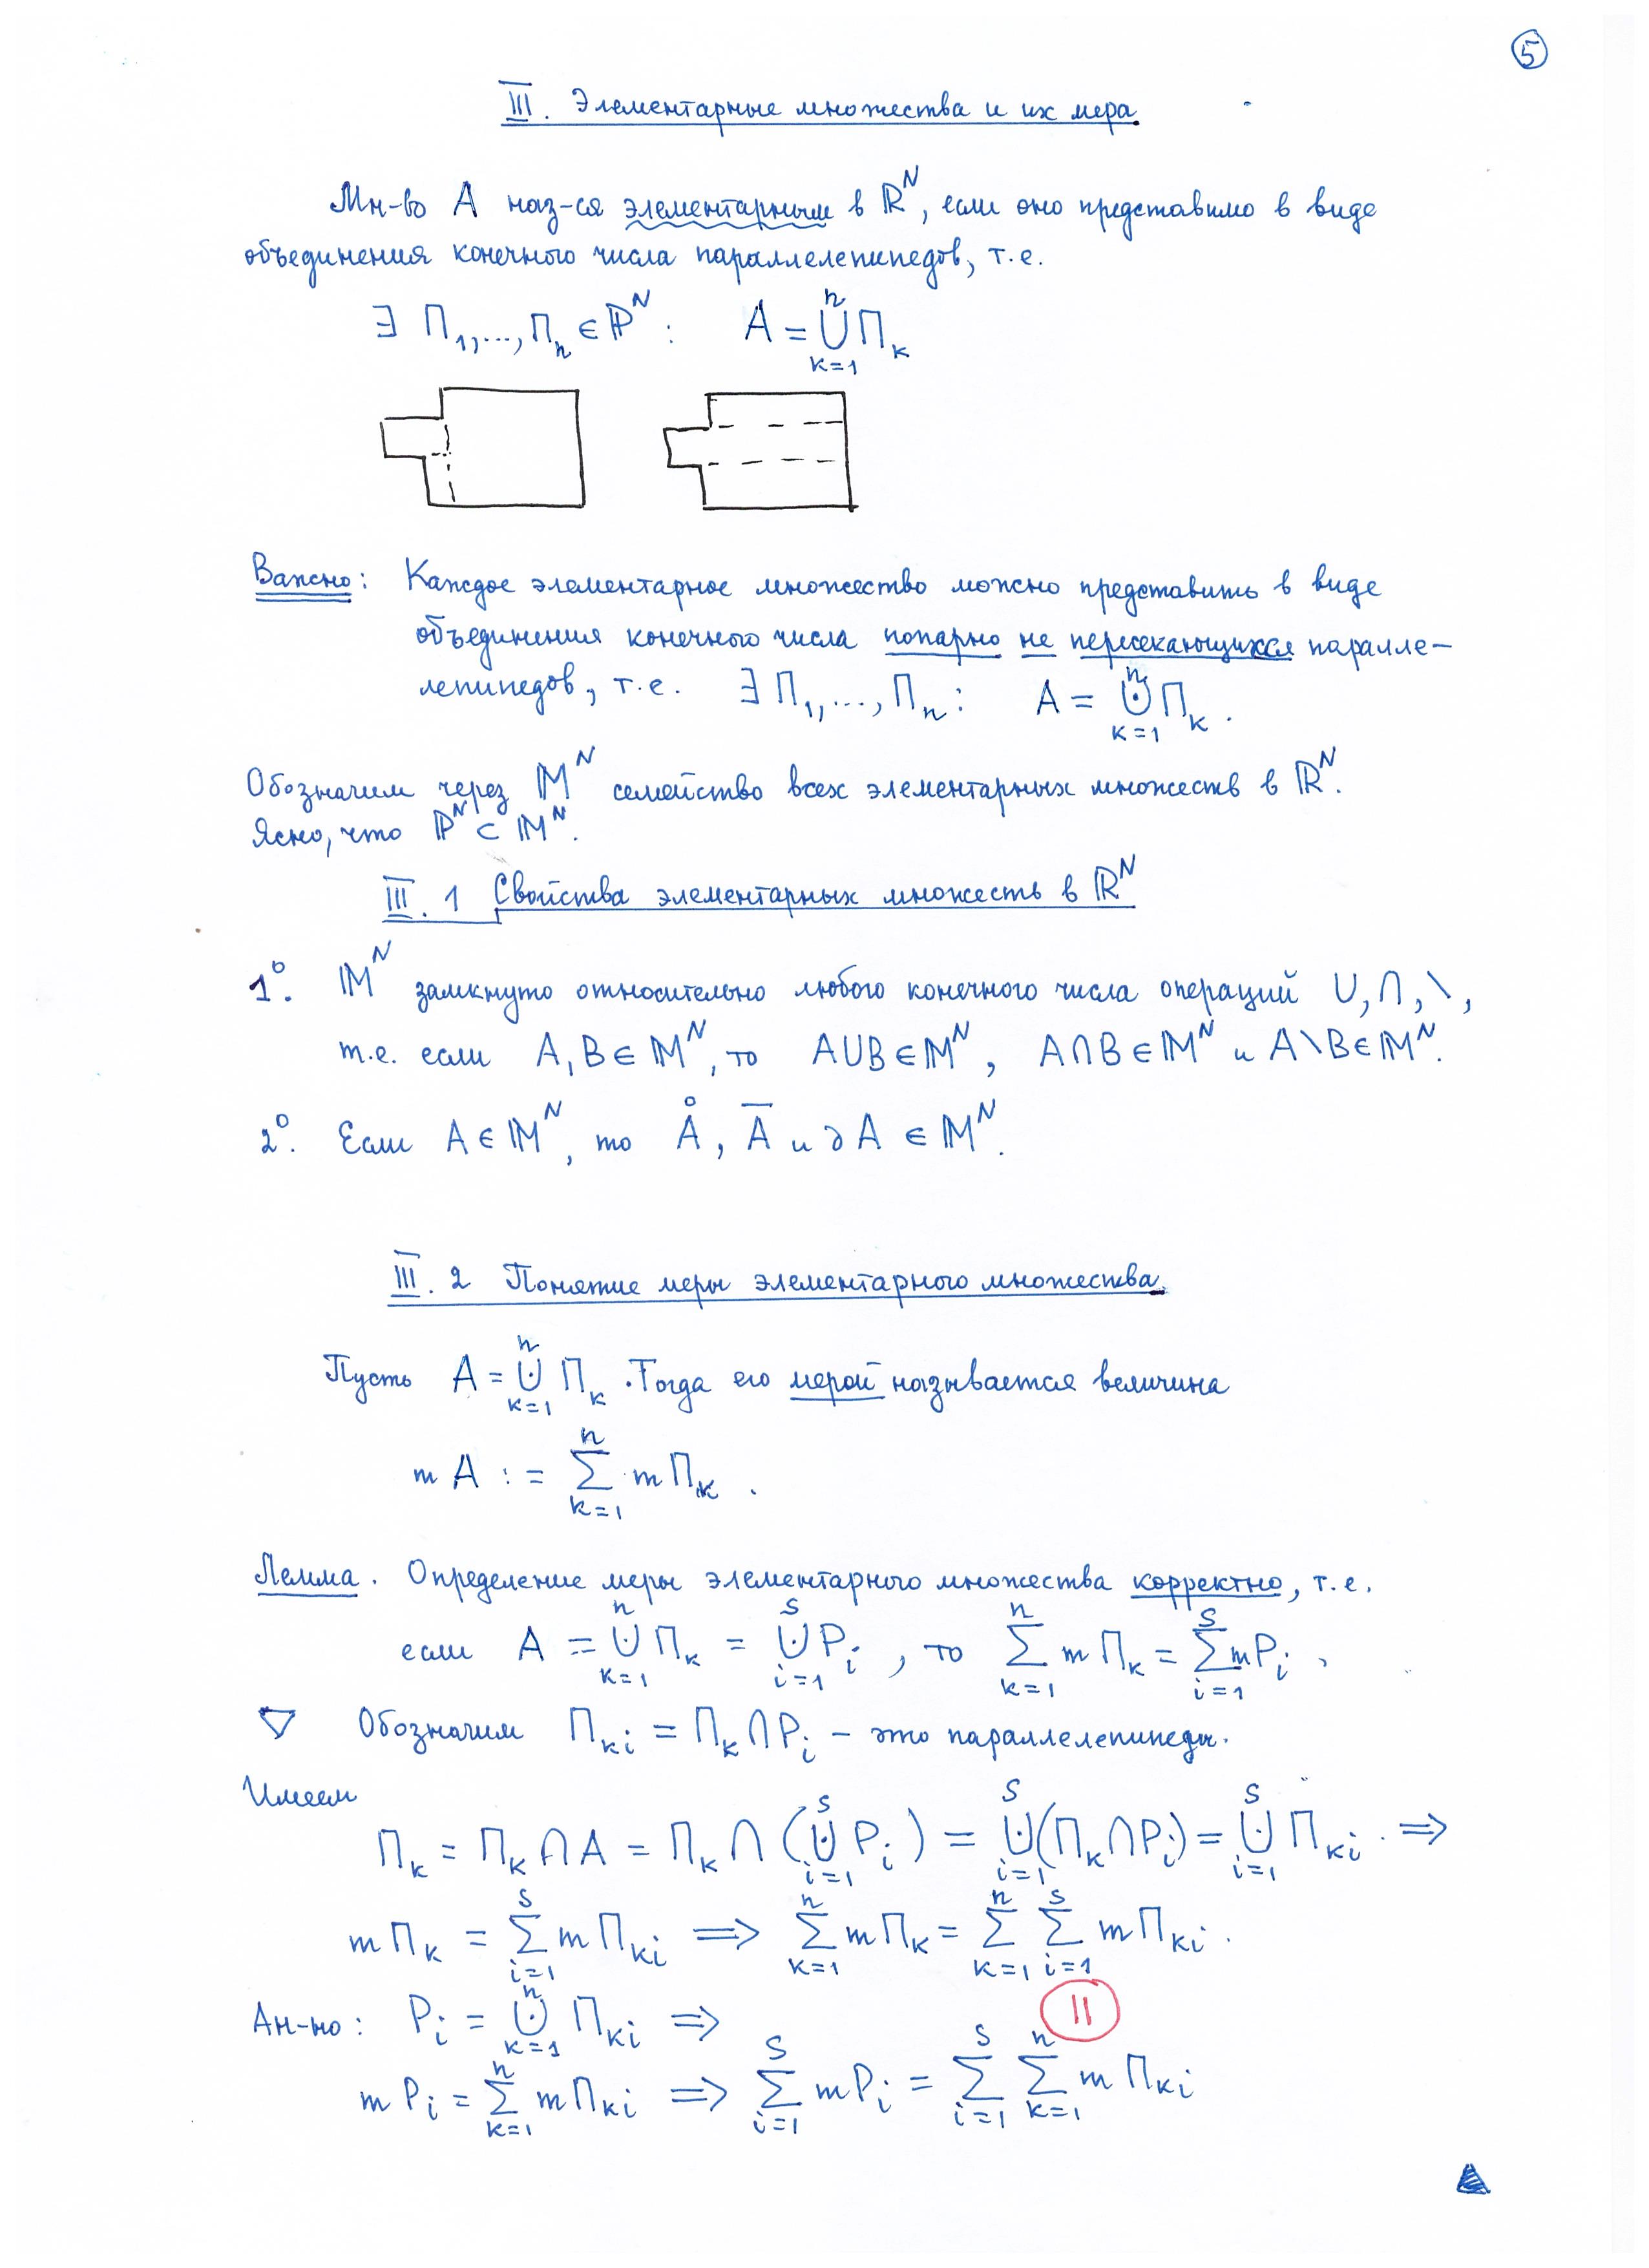 5
III. Элементарные множества и их мера.
Мн-во A наз-ся элементарным в ℝᴺ, если оно представимо в виде
объединения конечного числа параллелепипедов, т.е.
∃ Π₁,...,Πₙ ∈ ℙᴺ: A = ⋃ₖ₌₁ⁿ Πₖ
Важно: Каждое элементарное множество можно представить в виде
объединения конечного числа попарно не пересекающихся паралле-
лепипедов, т.е. ∃ Π₁,...,Πₙ: A = ⨃ₖ₌₁ⁿ Πₖ.
Обозначим через 𝕄ᴺ семейство всех элементарных множеств в ℝᴺ.
Ясно, что ℙᴺ ⊂ 𝕄ᴺ.
III. 1 Свойства элементарных множеств в ℝᴺ
1°. 𝕄ᴺ замкнуто относительно любого конечного числа операций ∪, ∩, \,
т.е. если A, B ∈ 𝕄ᴺ, то A∪B ∈ 𝕄ᴺ, A∩B ∈ 𝕄ᴺ и A\B ∈ 𝕄ᴺ.
2°. Если A ∈ 𝕄ᴺ, то Å, A̅ и ∂A ∈ 𝕄ᴺ.
III. 2 Понятие меры элементарного множества.
Пусть A = ⨃ₖ₌₁ⁿ Πₖ. Тогда его мерой называется величина
m A := ∑ₖ₌₁ⁿ m Πₖ.
Лемма. Определение меры элементарного множества корректно, т.е.
если A = ⨃ₖ₌₁ⁿ Πₖ = ⨃ᵢ₌₁ˢ Pᵢ, то ∑ₖ₌₁ⁿ m Πₖ = ∑ᵢ₌₁ˢ m Pᵢ,
▽ Обозначим Πₖᵢ = Πₖ ∩ Pᵢ – это параллелепипеды.
Имеем
Πₖ = Πₖ ∩ A = Πₖ ∩ (⨃ᵢ₌₁ˢ Pᵢ) = ⨃ᵢ₌₁ˢ (Πₖ ∩ Pᵢ) = ⨃ᵢ₌₁ˢ Πₖᵢ. ⇒
m Πₖ = ∑ᵢ₌₁ˢ m Πₖᵢ ⇒ ∑ₖ₌₁ⁿ m Πₖ = ∑ₖ₌₁ⁿ ∑ᵢ₌₁ˢ m Πₖᵢ.
Ан-но: Pᵢ = ⨃ₖ₌₁ⁿ Πₖᵢ ⇒ ||
m Pᵢ = ∑ₖ₌₁ⁿ m Πₖᵢ ⇒ ∑ᵢ₌₁ˢ m Pᵢ = ∑ᵢ₌₁ˢ ∑ₖ₌₁ⁿ m Πₖᵢ
▲